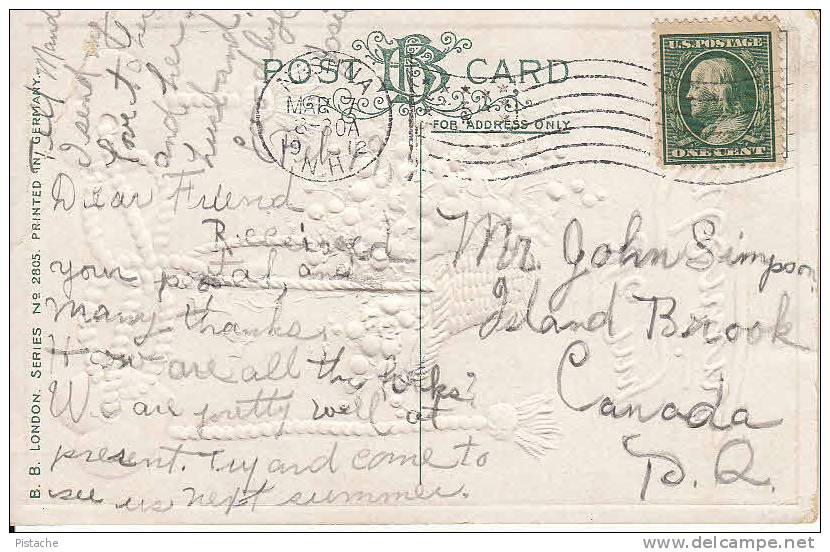 POST CARD
BB
FOR ADDRESS ONLY
U.S. POSTAGE
ONE CENT
MAR
8-30A
1912
N.H.
B. B. LONDON. SERIES No 2805. PRINTED IN GERMANY.
Dear Friend
Received
your postal, and
many thanks,
How are all the folks?
We are pretty well at
present. Try and come to
see us next summer.
Tell Maud
I send my
love to her
and her
husband
Mr. John Simpson
Island Brook
Canada
P. Q.
Pistache
www.delcampe.net